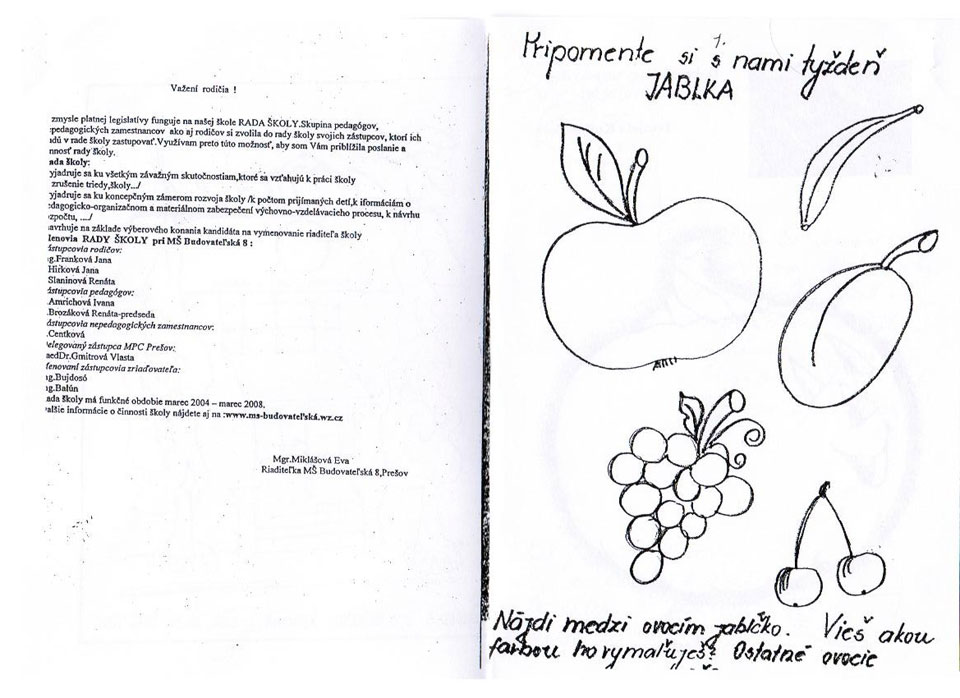 Važení rodičia !
zmysle platnej legislatívy funguje na našej škole RADA ŠKOLY.Skupina pedagógov,
pedagogických zamestnancov ako aj rodičov si zvolila do rady školy svojich zástupcov, ktorí ich
v rade školy zastupovať.Využívam preto túto možnosť, aby som Vám priblížila poslanie a
nnosť rady školy.
ada školy:
yjadruje sa ku všetkým závažným skutočnostiam,ktoré sa vzťahujú k práci školy
zrušenie triedy,školy.../
yjadruje sa ku koncepčným zámerom rozvoja školy /k počtom prijímaných detí,k iformáciám o
dagogicko-organizačnom a materiálnom zabezpečení výchovno-vzdelávacieho procesu, k návrhu
zpočtu, ..../
avrhuje na základe výberového konania kandidáta na vymenovanie riaditeľa školy
lenovia RADY ŠKOLY pri MŠ Budovateľská 8 :
ástupcovia rodičov:
g.Franková Jana
Hirková Jana
Slaninová Renáta
ástupcovia pedagógov:
Amrichová Ivana
.Brozáková Renáta-predseda
ástupcovia nepedagogických zamestnancov:
.Centková
elegovaný zástupca MPC Prešov:
aedDr.Gmitrová Vlasta
enovaní zástupcovia zriaďovateľa:
g.Bujdosó
g.Balún
ada školy má funkčné obdobie marec 2004 – marec 2008.
alšie informácie o činnosti školy nájdete aj na :www.ms-budovateľská.wz.cz
Mgr.Miklášová Eva
Riaditeľka MŠ Budovateľská 8,Prešov
1.
Pripomente si s nami týždeň
JABLKA
Nájdi medzi ovocím jabĺčko. Vieš akou
farbou ho vymaľuješ? Ostatné ovocie